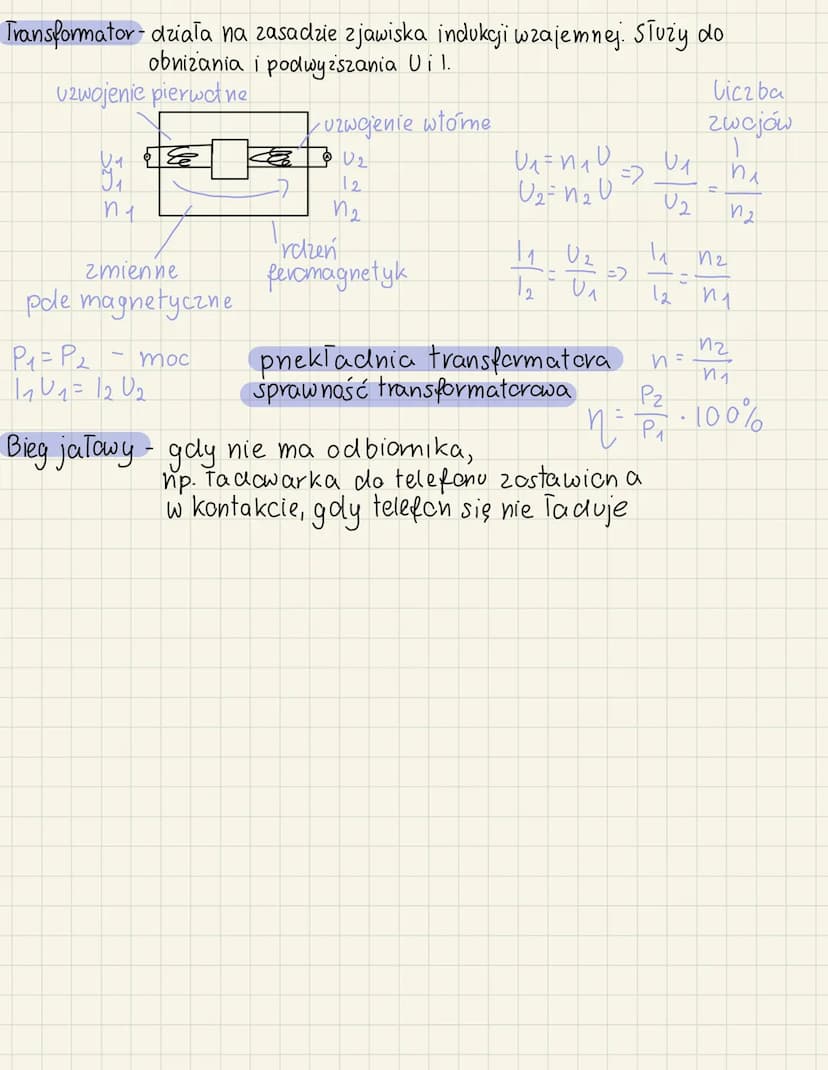 Transformator - działa na zasadzie zjawiska indukcji wzajemnej. Służy do
obniżania i podwyższania U i I.
uzwojenie pierwotne
uzwojenie wtórne
U1
J1
n1
U2
I2
n2
zmienne
pole magnetyczne
rdzeń
feromagnetyk
liczba
zwojów
U1 = n1 U
U2 = n2 U
=> U1/U2 = n1/n2
I1/I2 = U2/U1 => I1/I2 = n2/n1
P1 = P2 - moc
I1 U1 = I2 U2
przekładnia transformatora n = n2/n1
sprawność transformatorowa η = P2/P1 · 100%
Bieg jałowy - gdy nie ma odbiornika,
np. ładowarka do telefonu zostawiona
w kontakcie, gdy telefon się nie ładuje